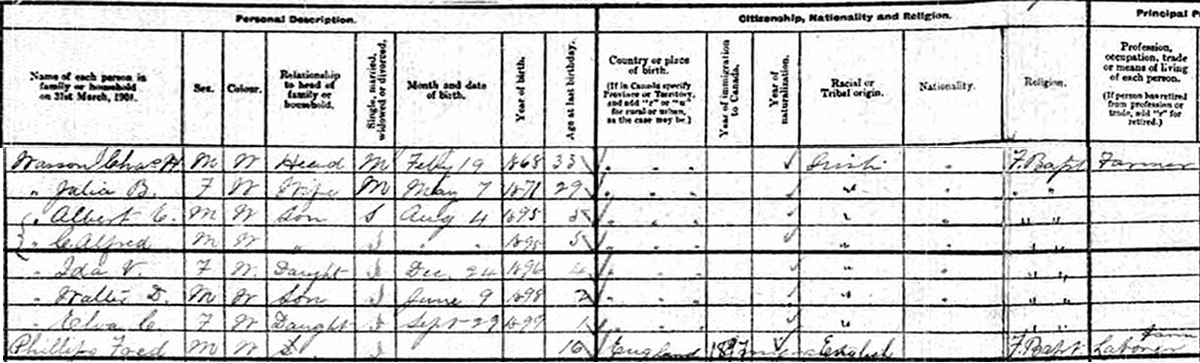 Personal Description. Citizenship, Nationality and Religion. Principal
Name of each person in family or household on 31st March, 1901. Sex. Colour. Relationship to head of family or household. Single, married, widowed or divorced. Month and date of birth. Year of birth. Age at last birthday. Country or place of birth. (If in Canada specify Province or Territory, and add "r" or "u" for rural or urban, as the case may be.) Year of immigration to Canada. Year of naturalization. Racial or Tribal origin. Nationality. Religion. Profession, occupation, trade or means of living of each person. (If person has retired from profession or trade, add "r" for retired.)
Wasson Chas H M W Head M Feby 19 1868 33 " " " Irish " F. Bapt Farmer
" Julia B. F W Wife M May 7 1871 29 " " " " " " "
" Albert E. M W Son S Aug 4 1895 5 " " " " " " "
" C Alfred M W " S " " 1895 5 " " " " " " "
" Ida V. F W. Daught S Dec. 24 1896 4 " " " " " " "
" Walter D. M W Son S June 9 1898 2 " " " " " " "
" Elva C. F W Daught S Sept 29 1899 1 " " " " " "
Phillips Fred M W 16 England English F. Bapt Farm Laborer